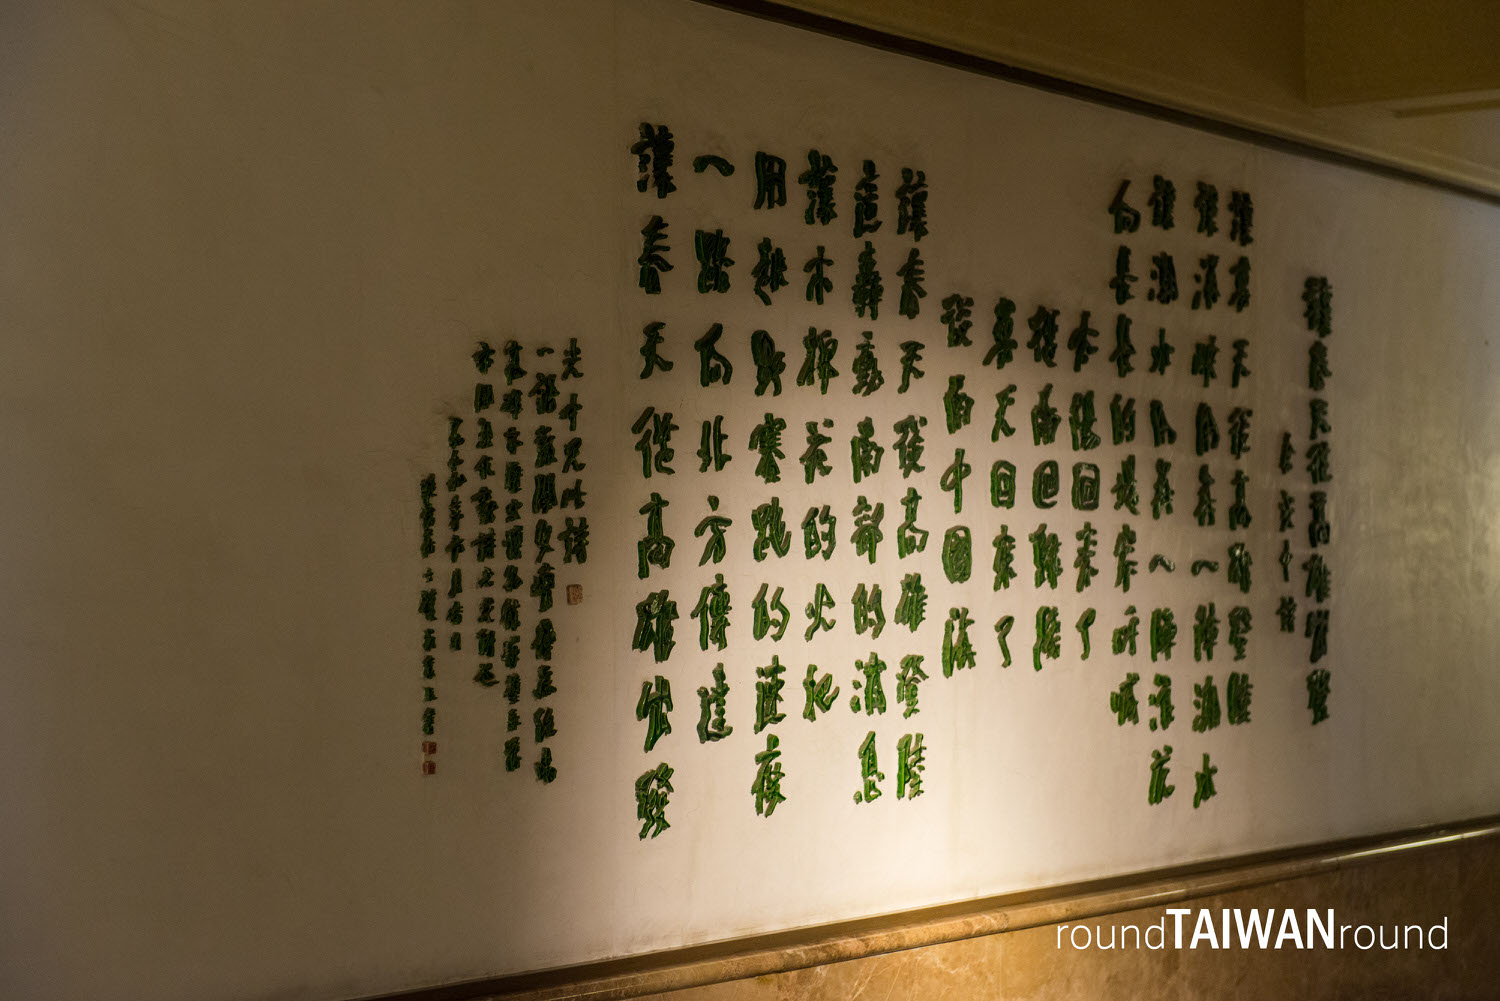 讓春天從高雄出發
余光中詩
讓春天從高雄登陸
讓海峽用每一陣潮水
讓潮水用每一陣浪花
向長長的堤岸呼喊
太陽回來了
從南回歸線
春天回來了
從南中國海
讓春天從高雄登陸
這轟動南部的消息
讓木棉花的火把
用越野賽跑的速度
一路向北方傳達
讓春天從高雄出發
光中兄此詩
roundTAIWANround